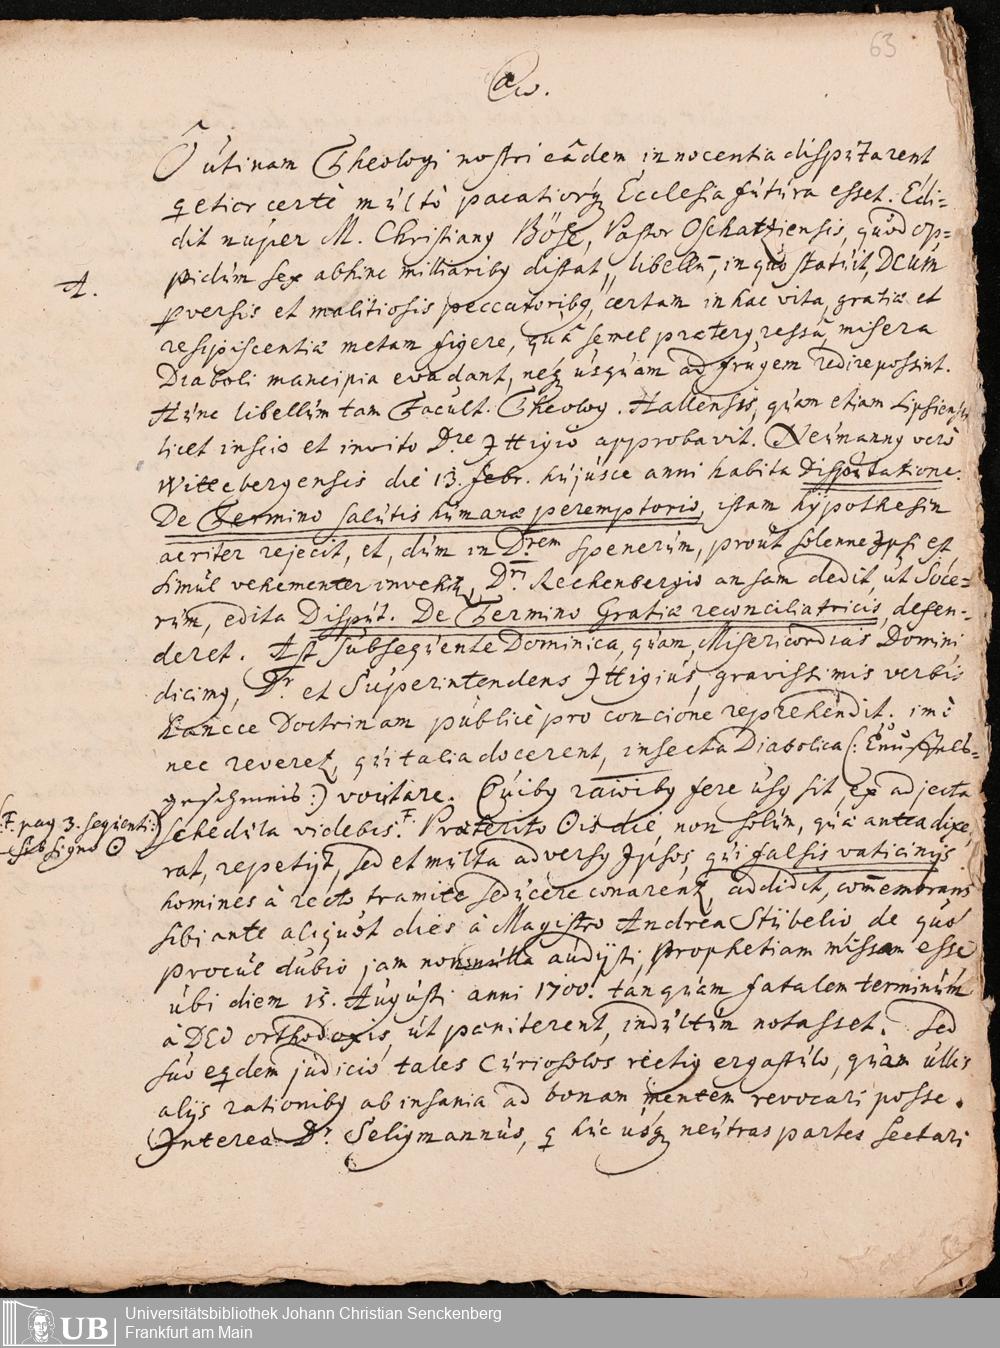 63
Ô utinam Theologi nostri eâdem innocentia disputarent
qetior certè multò pacatiorq; Ecclesia futura esset. Edi=
dit nuper M. Christiang Böse, Pastor Oschatziensis, quod op=
pidum sex abhinc milliariby distat, libellū, in quo statuit, DEUM
A.
pversis et malitiosis peccatoriby, certam in hac vita, gratiæ et
resipiscentiæ metam figere, quâ semel prætergressâ, misera
Diaboli mancipia evadant, neq; usquam ad frugem redire possint.
Hunc libellum tam Facult. Theolog. Hallensis, quam etiam Lipsiensis
licet inscio et invito D.re Ittigio approbavit. Neumanny verò
Wittebergensis die 13. Febr. hujusce anni habita Disputatione.
De Termino salutis humanæ peremptorio, istam hypothesin
acriter rejecit, et, dum in D.rem Spenerum, prout solenne Ipsi est,
simul vehementer inveht, D.ri Rechenbergio ansam dedit, ut Soce=
rum, edita Disput. De Termino Gratiæ reconciliatricis, defen=
deret. Ast subsequente Dominica, quam, Misericordias Domini
dicimg, D.r et Superintendens Ittigius, gravissimis verbis
hancce Doctrinam publicè pro concione reprehendit. imò
nec reveret, qui talia docerent, insecta Diabolica (: Teuffels=
geschmeis:) vocitare. Cuiby rawiby fere usg sit, ex adjecta
(F. pag 3. seqvent:)
sub signo ☉
schedula videbis. F Præterito Ois die, non solum, quæ antea dixe,
rat, repetijt, sed et multa adversg Ipsos, qui falsis vaticinijs
homines à recto tramite seducere conarent, addidit, com̄embrans
sibi ante aliquot dies à Magistro Andrea Stübelio de quo
procul dubio jam nonnulla audijsti, Prophetiam missam esse
ubi diem 15. Augusti anni 1700. tanquam fatalem terminum
à DEO orthodoxis, ut pœniterent, indultum notasset. Sed
suo eqdem judicio tales Curiosolos rectig ergastulo, quam ullis
alijs rationiby ab insania ad bonam mentem revocari posse.
Interea D.r Seligmannus, q huc usq; neutras partes sectari
Universitätsbibliothek Johann Christian Senckenberg
UB
Frankfurt am Main